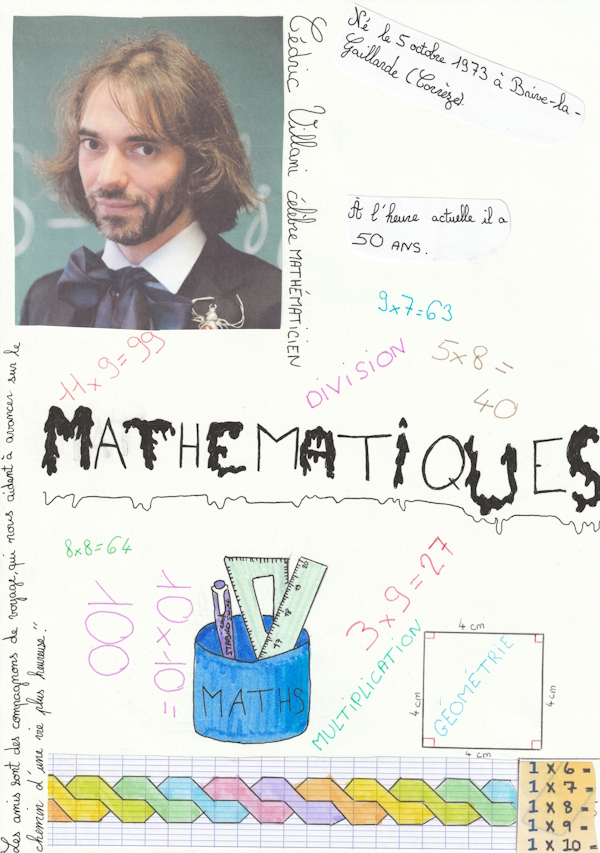 Né le 5 octobre 1973 à Brive-la-
Gaillarde (Corrèze).
Cédric Villani célèbre MATHÉMATICIEN
À l'heure actuelle il a
50 ANS.
9x7=63
11x9=99
DIVISION
5x8=
40
MATHEMATIQUES
8x8=64
100
=10x10
3x9=27
MULTIPLICATION
MATHS
4 cm
4 cm
GÉOMÉTRIE
4 cm
4 cm
Les amis sont des compagnons de voyage, qui nous aident à avancer sur le
chemin d'une vie plus heureuse."
1 X 6 =
1 X 7 =
1 X 8 =
1 X 9 =
1 X 10 =